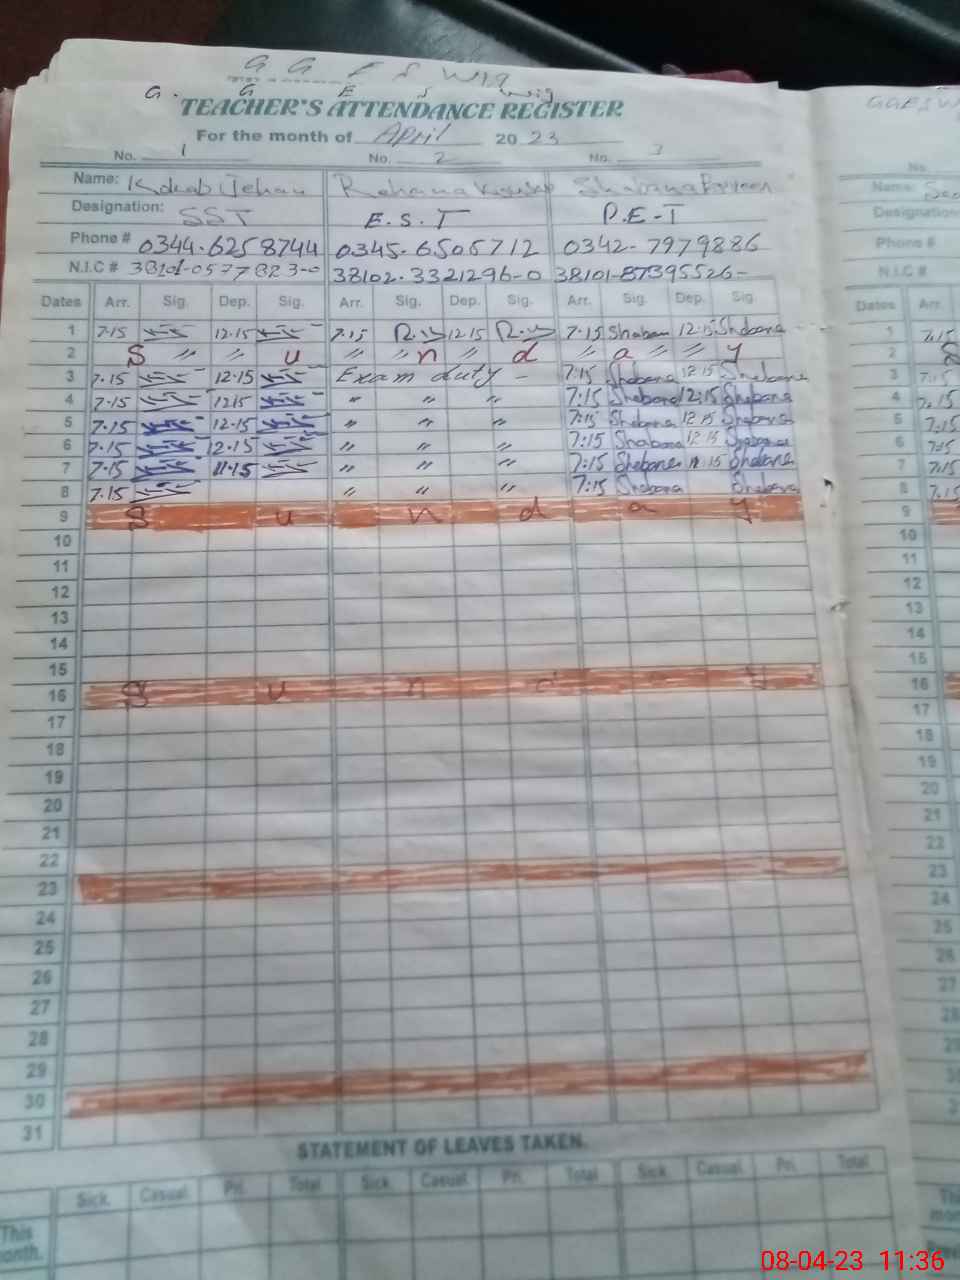 G G E S Wig
G. G E S Wig
TEACHER'S ATTENDANCE REGISTER
For the month of April 2023
No. 1 No. 2 No. 3
Name: Kokab Jehan Rehana Shabana Parveen
Designation: SST E.S.T P.E.T
Phone # 0344-6258744 0345-6505712 0342-7979886
N.I.C # 38101-0577823-0 38102-3321296-0 38101-8739526-
Dates Arr. Sig. Dep. Sig. Arr. Sig. Dep. Sig. Arr. Sig. Dep. Sig.
1 7.15 12.15 7.15 12.15 7.15 Shaban 12.15 Shabana
2 S " " u " " n " d " a " " y
3 7.15 12.15 Exam duty - 7:15 Shabana 12.15 Shabana
4 7.15 12.15 " " " 7:15 Shabana 12:15 Shabana
5 7.15 12.15 " " " 7:15 Shabana 12.15 Shabana
6 7.15 12.15 " " " 7:15 Shabana 12.15 Shabana
7 7.15 11.15 " " " 7:15 Shabana 11.15 Shabana
8 7.15 " " " 7:15 Shabana Shabana
9 S u n d a y
10
11
12
13
14
15
16 S u n d y
17
18
19
20
21
22
23
24
25
26
27
28
29
30
31
STATEMENT OF LEAVES TAKEN.
Sick. Casual. Pri. Total Sick. Casual. Pri. Total Sick. Casual. Pri. Total
This month.
GGES W
No.
Name:
Designation
Phone #
N.I.C #
Dates Arr.
1 7.15
2 S
3 7.15
4 7.15
5 7.15
6 7:15
7 7.15
8 7.15
9
10
11
12
13
14
15
16
17
18
19
20
21
22
23
24
25
26
27
28
08-04-23 11:36